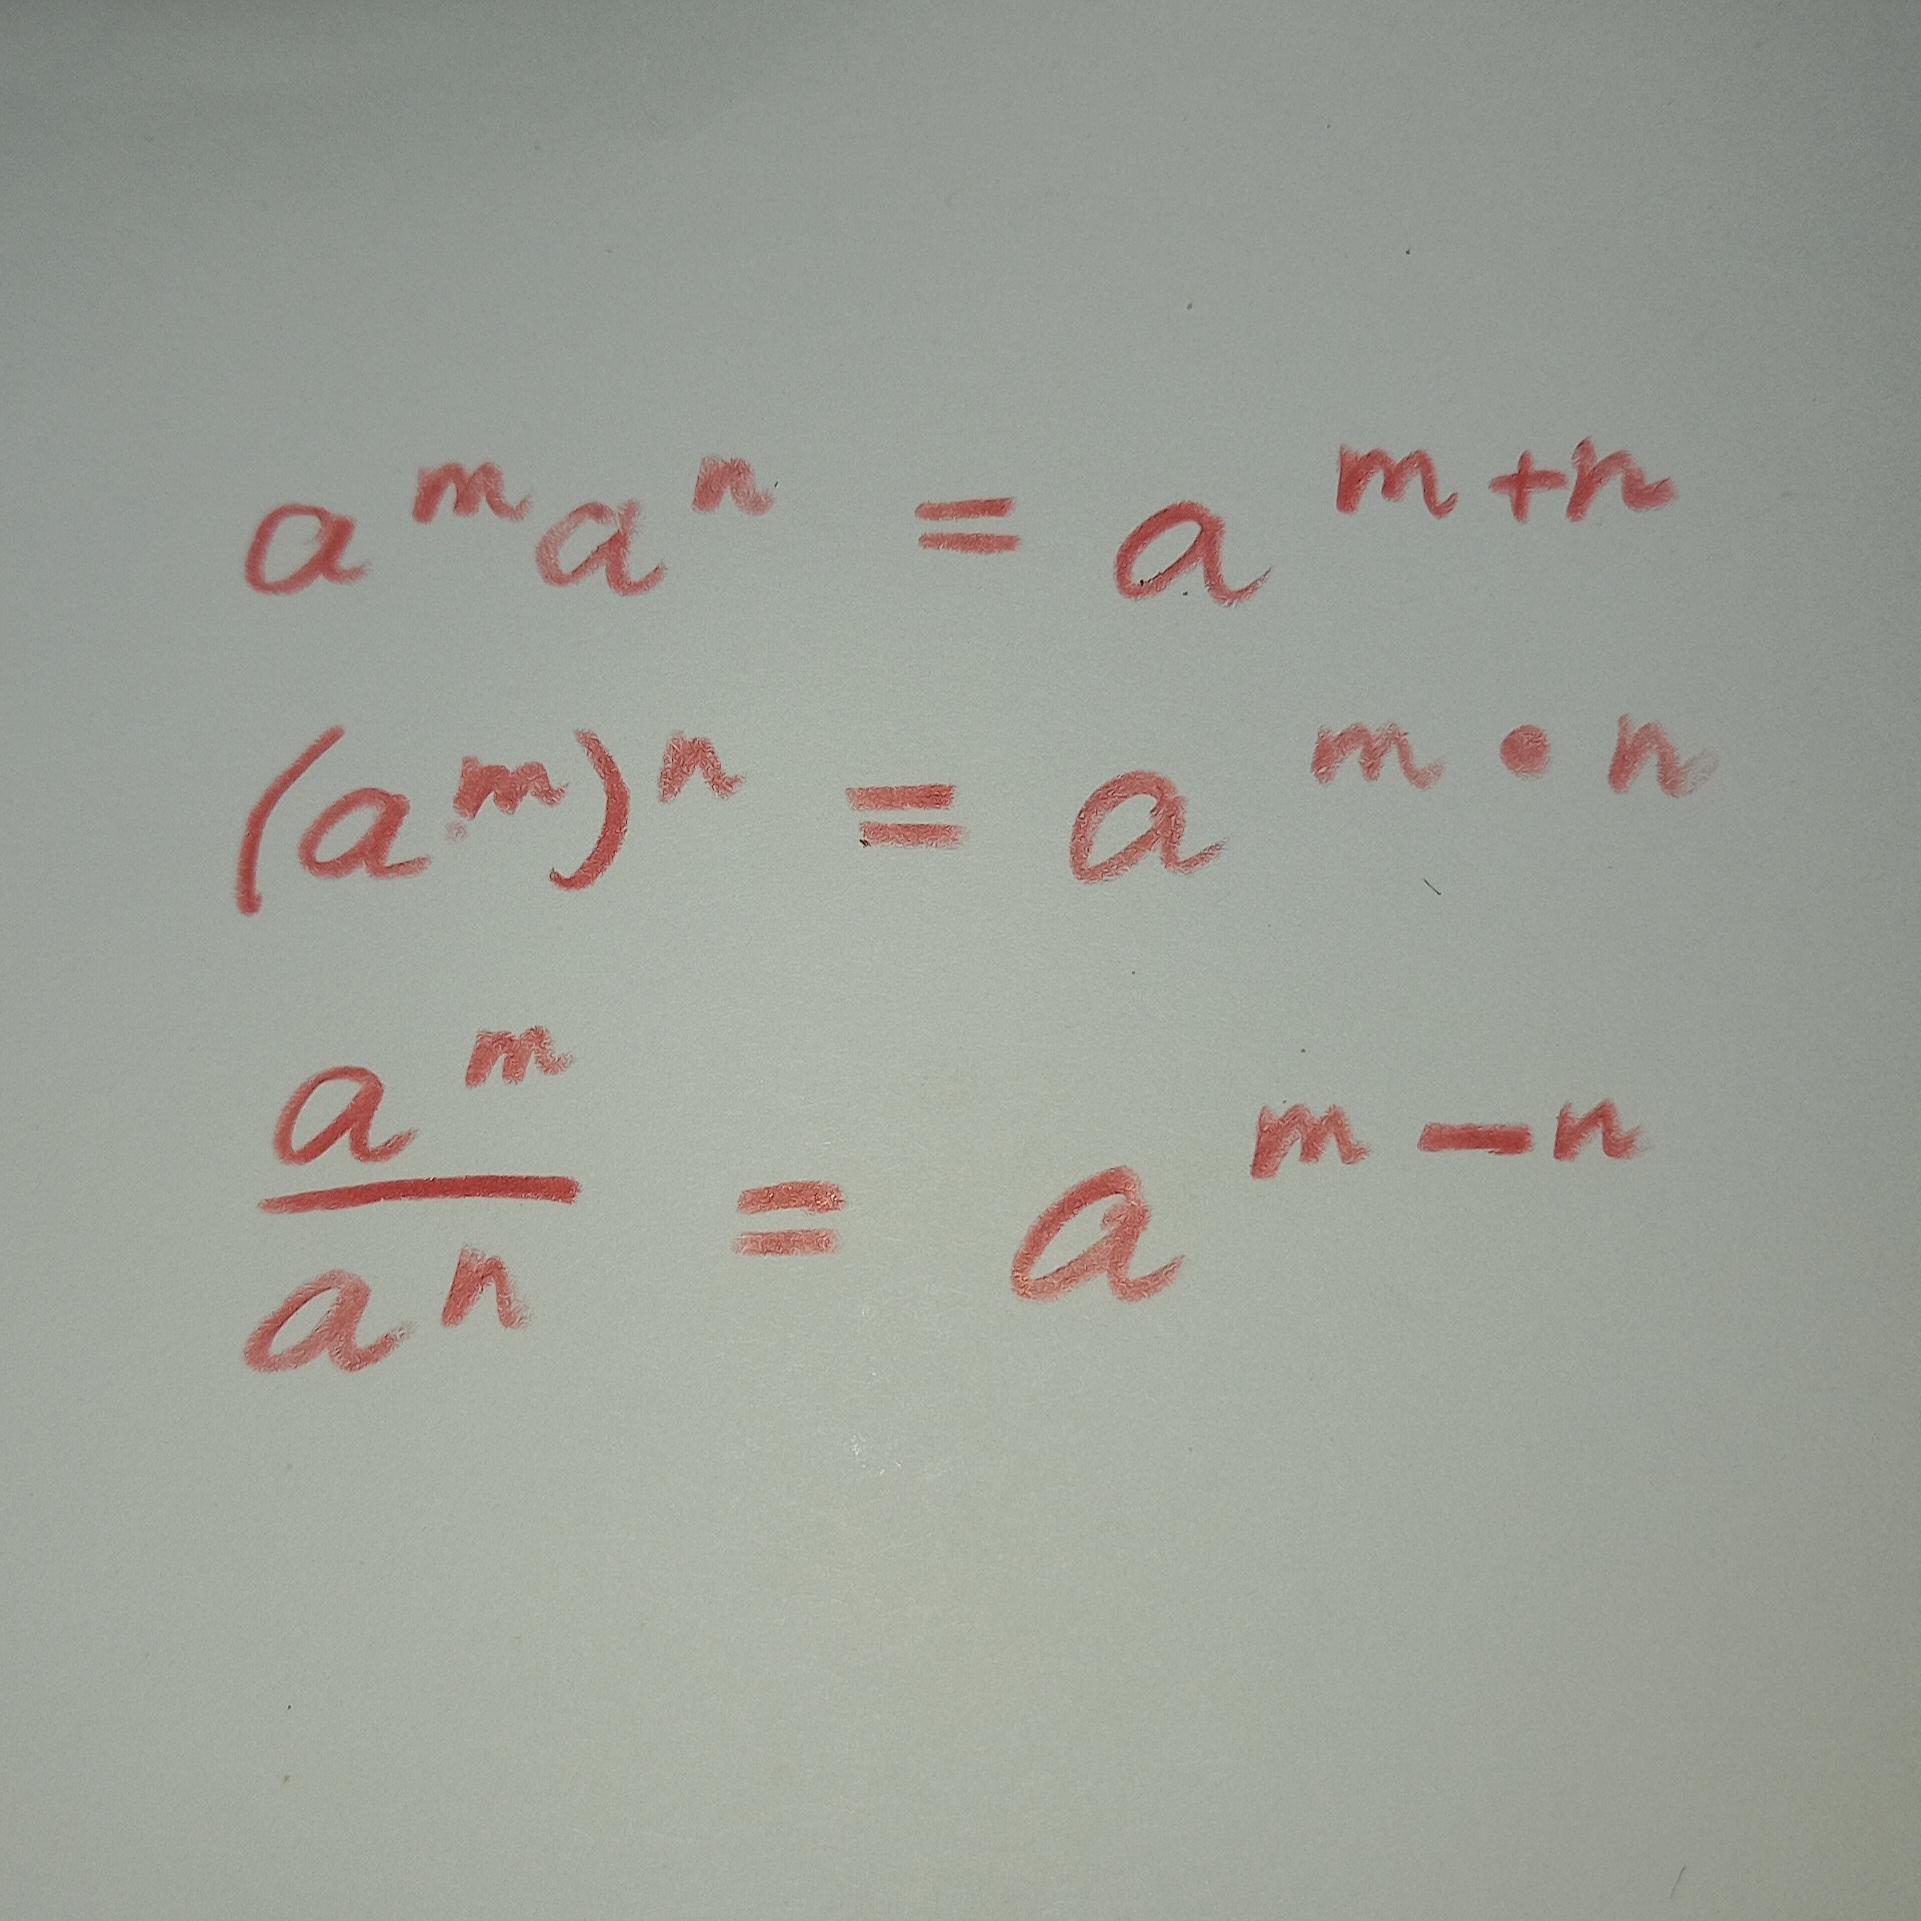 aᵐaⁿ = aᵐ⁺ⁿ
(aᵐ)ⁿ = a^(m•n)
aᵐ/aⁿ = aᵐ⁻ⁿ